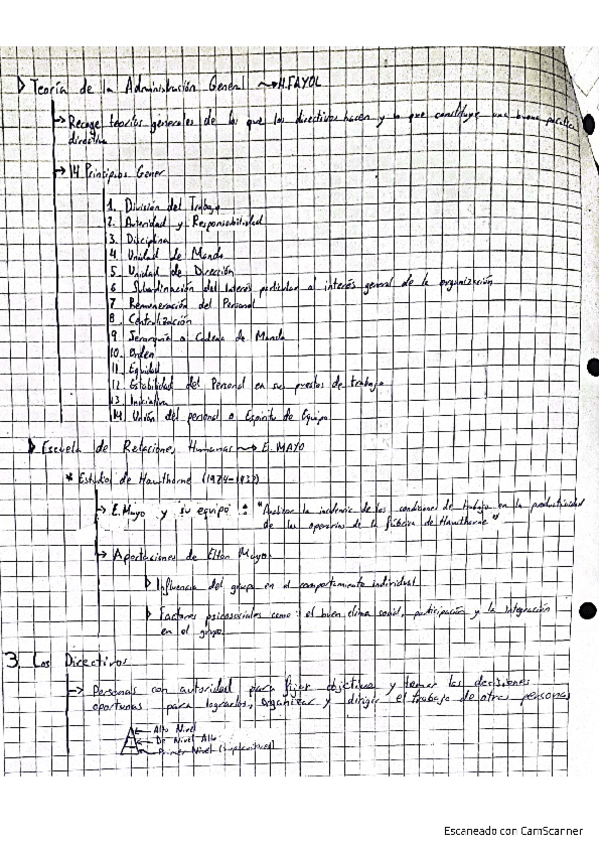 Teoría de la Administración General → H. FAYOL
→ Recoge teorías generales de los que los directivos hacen y lo que constituye una buena práctica
directiva
→ 14 Principios Gener
1. División del Trabajo
2. Autoridad y Responsabilidad
3. Disciplina
4 Unidad de Mando
5 Unidad de Dirección
6 Subordinación del interés particular al interés general de la organización
7 Remuneración del Personal
8 Centralización
9 Jerarquía o Cadena de Mando
10. Orden
11. Equidad
12 Estabilidad del Personal en sus puestos de trabajo
13 Iniciativa
14. Unión del personal o Espíritu de Equipo
Escuela de Relaciones Humanas → E. MAYO
* Estudio de Hawthorne
→ E. Mayo y su equipo: "Analizar la incidencia de las condiciones de trabajo en la productividad
de los operarios de la fábrica de Hawthorne"
→ Aportaciones de Elton Mayo
Influencia del grupo en el comportamiento individual
Factores psicosociales como: el buen clima social, participación y la integración
en el grupo
3. Los Directivos
→ Personas con autoridad para fijar objetivos y tomar las decisiones
oportunas para lograrlos, organizar y dirigir el trabajo de otras personas
Alto Nivel
De Nivel
Primer Nivel
Escaneado con CamScanner